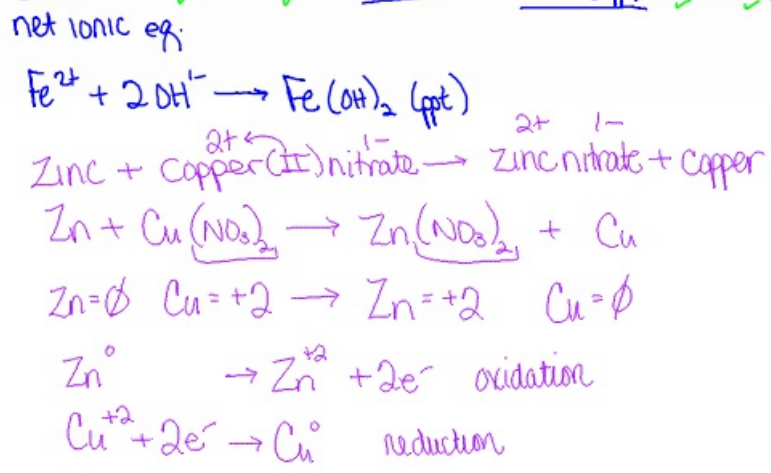 net ionic eq.
Fe²⁺ + 2 OH¹⁻ → Fe(OH)₂ (ppt)
2+ ← 1- 2+ 1-
Zinc + Copper(II)nitrate → zinc nitrate + copper
Zn + Cu(NO₃)₂ → Zn(NO₃)₂ + Cu
Zn=Ø Cu=+2 → Zn=+2 Cu=Ø
Zn⁰ → Zn⁺² + 2e⁻ oxidation
Cu⁺² + 2e⁻ → Cu⁰ reduction